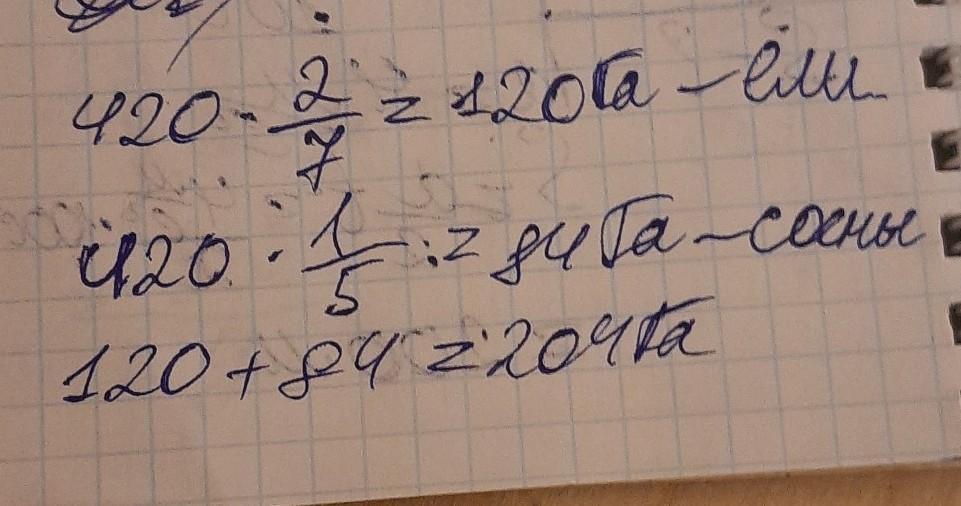 420 · 2/7 = 120 Га – ели
420 · 1/5 = 84 Га – сосны
120 + 84 = 204 Га